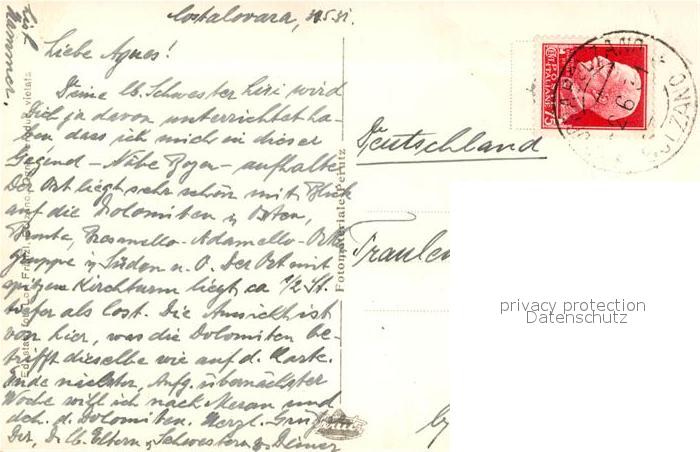 Costalovara, 31.5.31.
Liebe Agnes!
Deine lb. Schwester Lisi wird
Dich ja davon unterrichtet ha-
ben dass ich mich in dieser
Gegend - Nähe Bozen - aufhalte.
Der Ort liegt sehr schön mit Blick
auf die Dolomiten i. Osten,
Brenta, Presanella - Adamello - Ortl.
Gruppe i. Süden u. O. Der Ort mit
spitzem Kirchturm liegt ca 1/2 St.
tiefer als Cost. Die Aussicht ist
von hier, was die Dolomiten be-
trifft dieselbe wie auf d. Karte.
Ende nächster, Anfg. übernächster
Woche will ich nach Meran und
dch. d. Dolomiten. Herzl. Grüße
Dir, D. lb. Eltern, Schwestern u. Deiner
Fotomateriale Perutz
vietata
Deutschland
Fräulein
POSTE
ITALIANE
75
privacy protection
Datenschutz